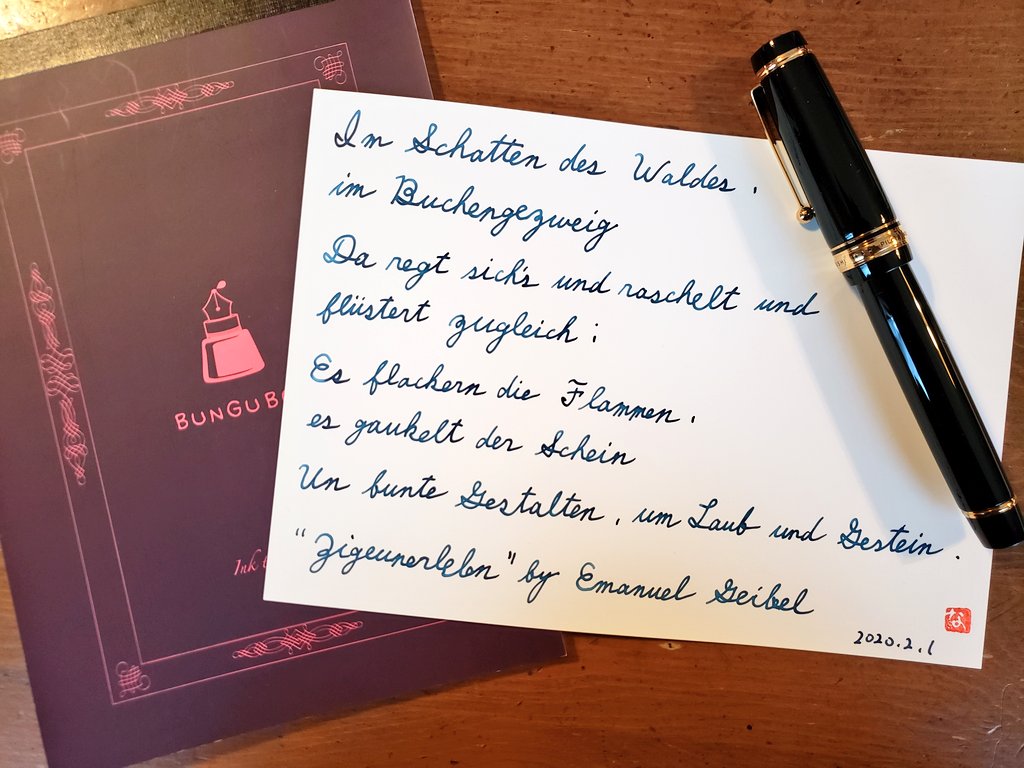 Im Schatten des Waldes,
im Buchengezweig
Da regt sich's und raschelt und
flüstert zugleich:
Es flackern die Flammen,
es gaukelt der Schein
Un bunte Gestalten, um Laub und Gestein.
"Zigeunerlebn" by Emanuel Geibel
な
2020.2.1
BUNGUB
Ink